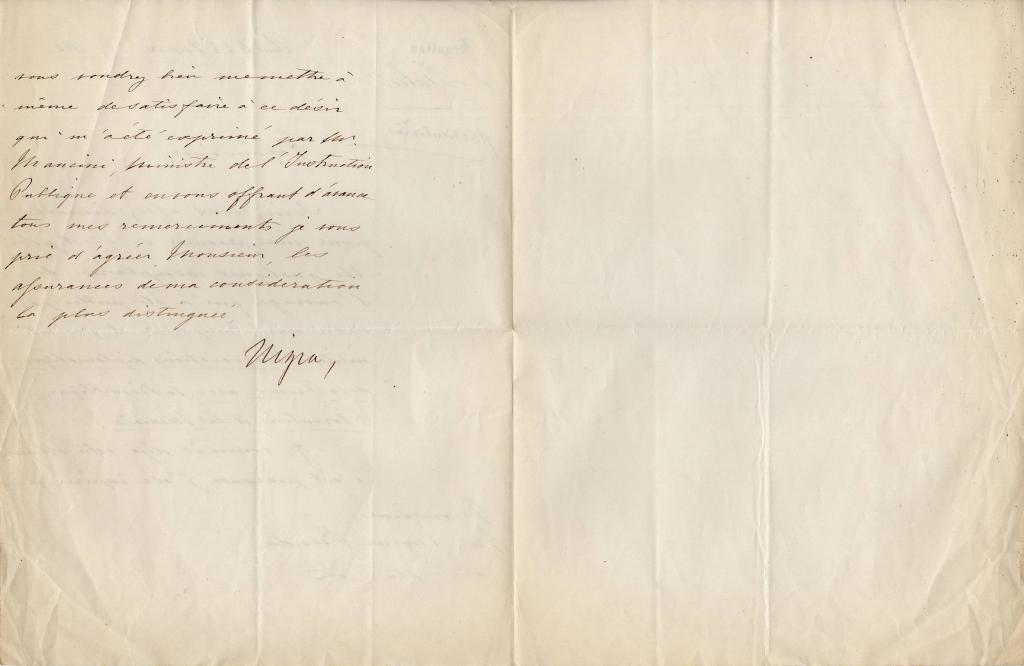 vous voudrez bien me mettre à
même de satisfaire à ce désir
qui m'a été exprimé par Mr.
Mancini, ministre de l'Instruction
Publique et en vous offrant d'avance
tous mes remerciments je vous
prie d'agréer Monsieur, les
assurances de ma considération
la plus distinguée
Nigra,